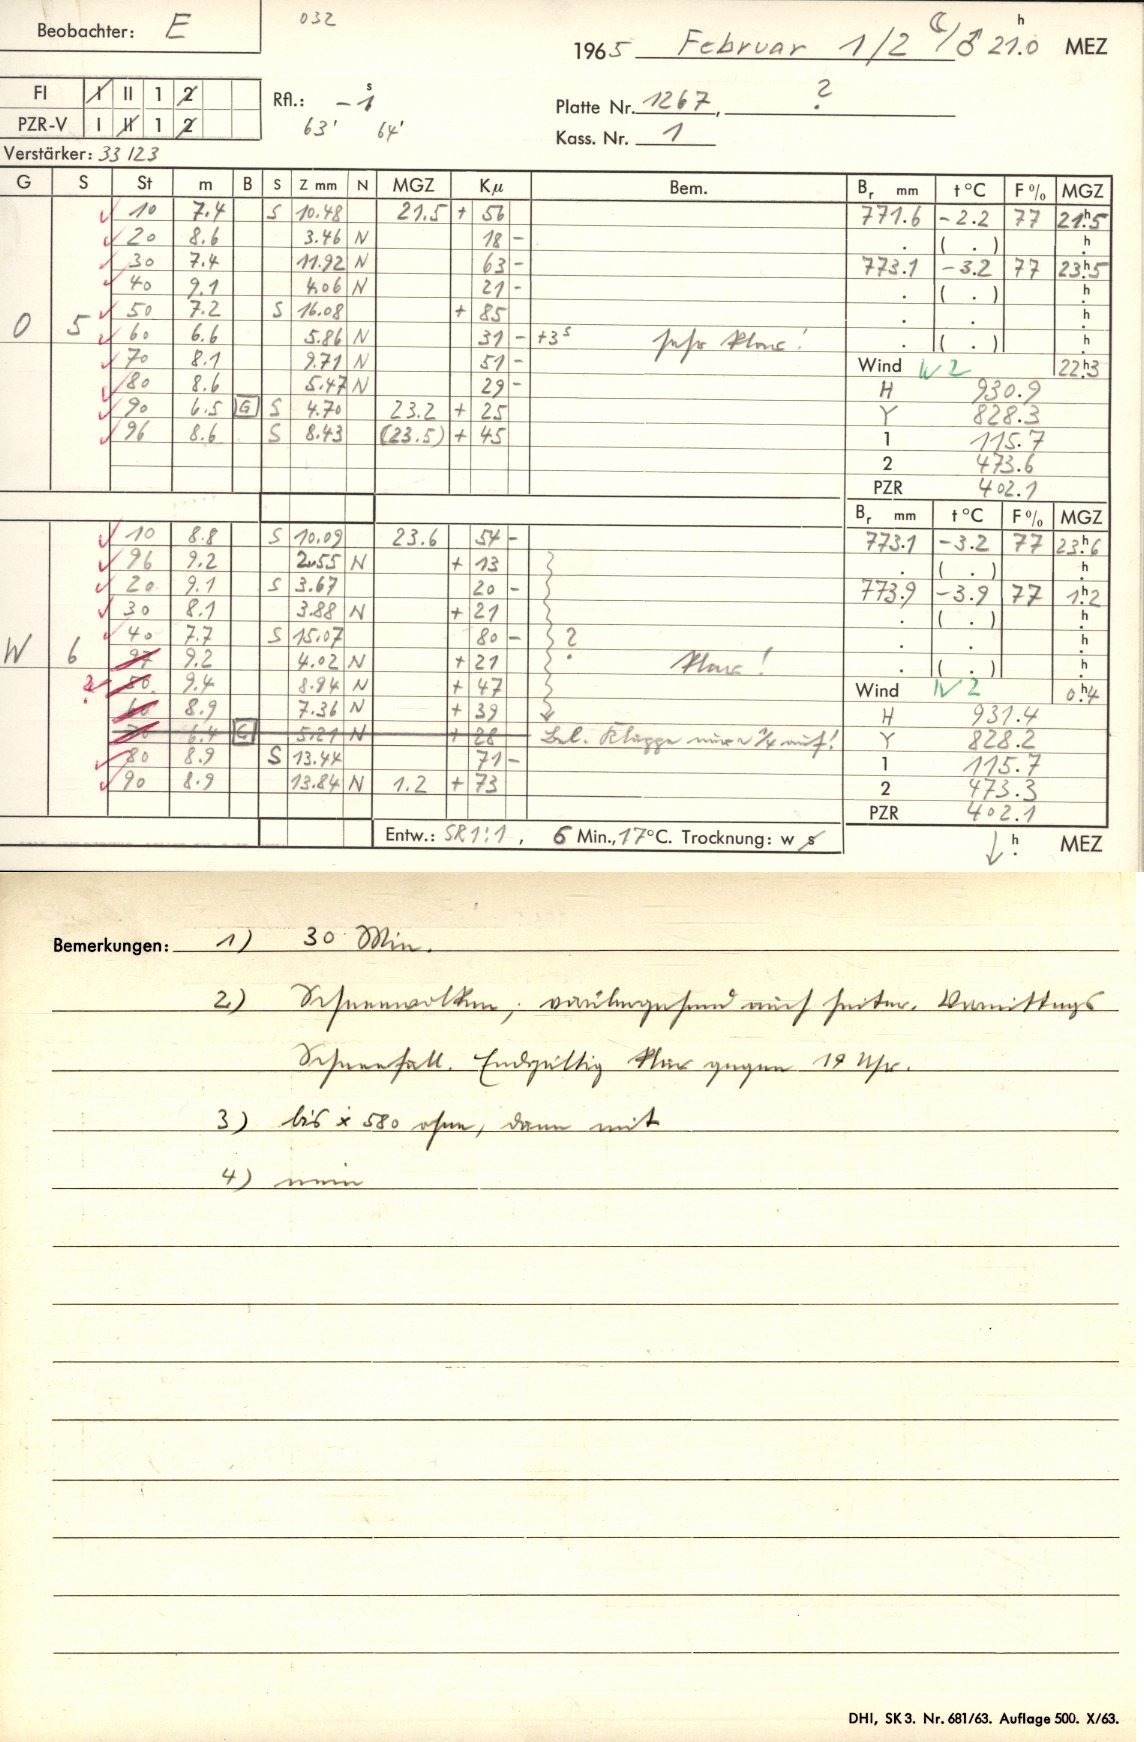 Beobachter: E
032
1965 Februar 1/2 ☾/♂ 21.0 h MEZ
FI I II 1 2
PZR-V I II 1 2
Rfl.: -1 s
63' 64'
Platte Nr. 1267, ?
Kass. Nr. 1
Verstärker: 33/23
G S St m B S Z mm N MGZ Kμ Bem. Br mm t °C F % MGZ
10 7.4 S 10.48 21.5 + 56 771.6 -2.2 77 21h.5
20 8.6 3.46 N 18 - . ( . ) h.
30 7.4 11.92 N 63 - 773.1 -3.2 77 23h.5
40 9.1 4.06 N 21 - . ( . ) h.
50 7.2 S 16.08 + 85 . . h.
O 5 60 6.6 5.86 N 31 - +3s sehr klar! . ( . ) h.
70 8.1 9.71 N 51 - Wind W 2 22h.3
80 8.6 5.47 N 29 - H 930.9
90 6.5 G S 4.70 23.2 + 25 Y 828.3
96 8.6 S 8.43 (23.5) + 45 1 115.7
2 473.6
PZR 402.1
Br mm t °C F % MGZ
10 8.8 S 10.09 23.6 54 - 773.1 -3.2 77 23h.6
96 9.2 2.55 N + 13 . ( . ) h.
20 9.1 S 3.67 20 - 773.9 -3.9 77 1h.2
30 8.1 3.88 N + 21 . ( . ) h.
40 7.7 S 15.07 80 - ? . . h.
W 6 97 9.2 4.02 N + 21 klar! . ( . ) h.
? 50 9.4 8.94 N + 47 Wind W 2 0h.4
60 8.9 7.36 N + 39 H 931.4
70 6.4 G 5.21 N + 28 Bel. Klappe nur ~ 3/4 auf! Y 828.2
80 8.9 S 13.44 71 - 1 115.7
90 8.9 13.84 N 1.2 + 73 2 473.3
PZR 402.1
Entw.: SR 1:1, 6 Min., 17 °C. Trocknung: w s
↓ h. MEZ
Bemerkungen: 1) 30 Min.
2) Schneewolken, vorübergehend auch heiter. Vormittags
Schneefall. Endgültig klar gegen 19 Uhr.
3) bis x 580 ohne, dann mit
4) nein
DHI, SK 3. Nr. 681/63. Auflage 500. X/63.